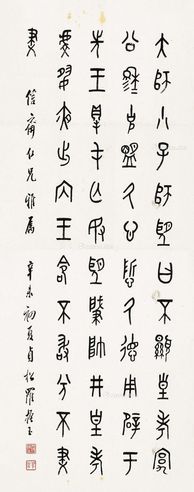 大師小子師望曰不顯皇考宄
公穆克盟氒心悊氒德用辟于
先王得屯亡敃望肇帥井皇考
虔夙夜出內王命不敢分不妻
妻
信齋仁兄雅屬 辛未初夏貞松羅振玉